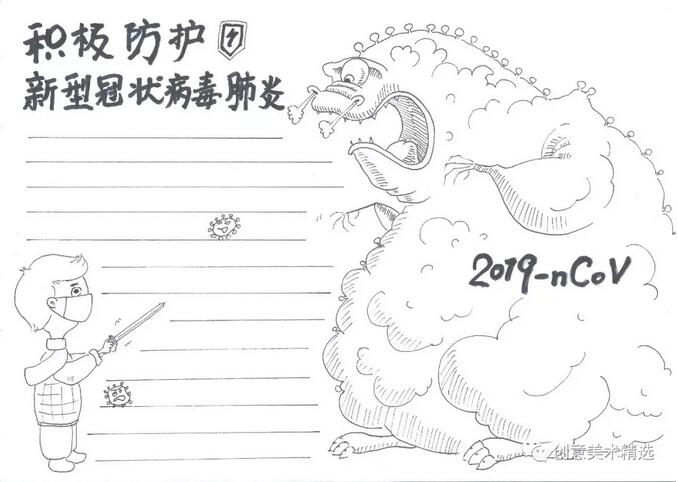 积极防护
新型冠状病毒肺炎
2019-nCoV
创意美术精选